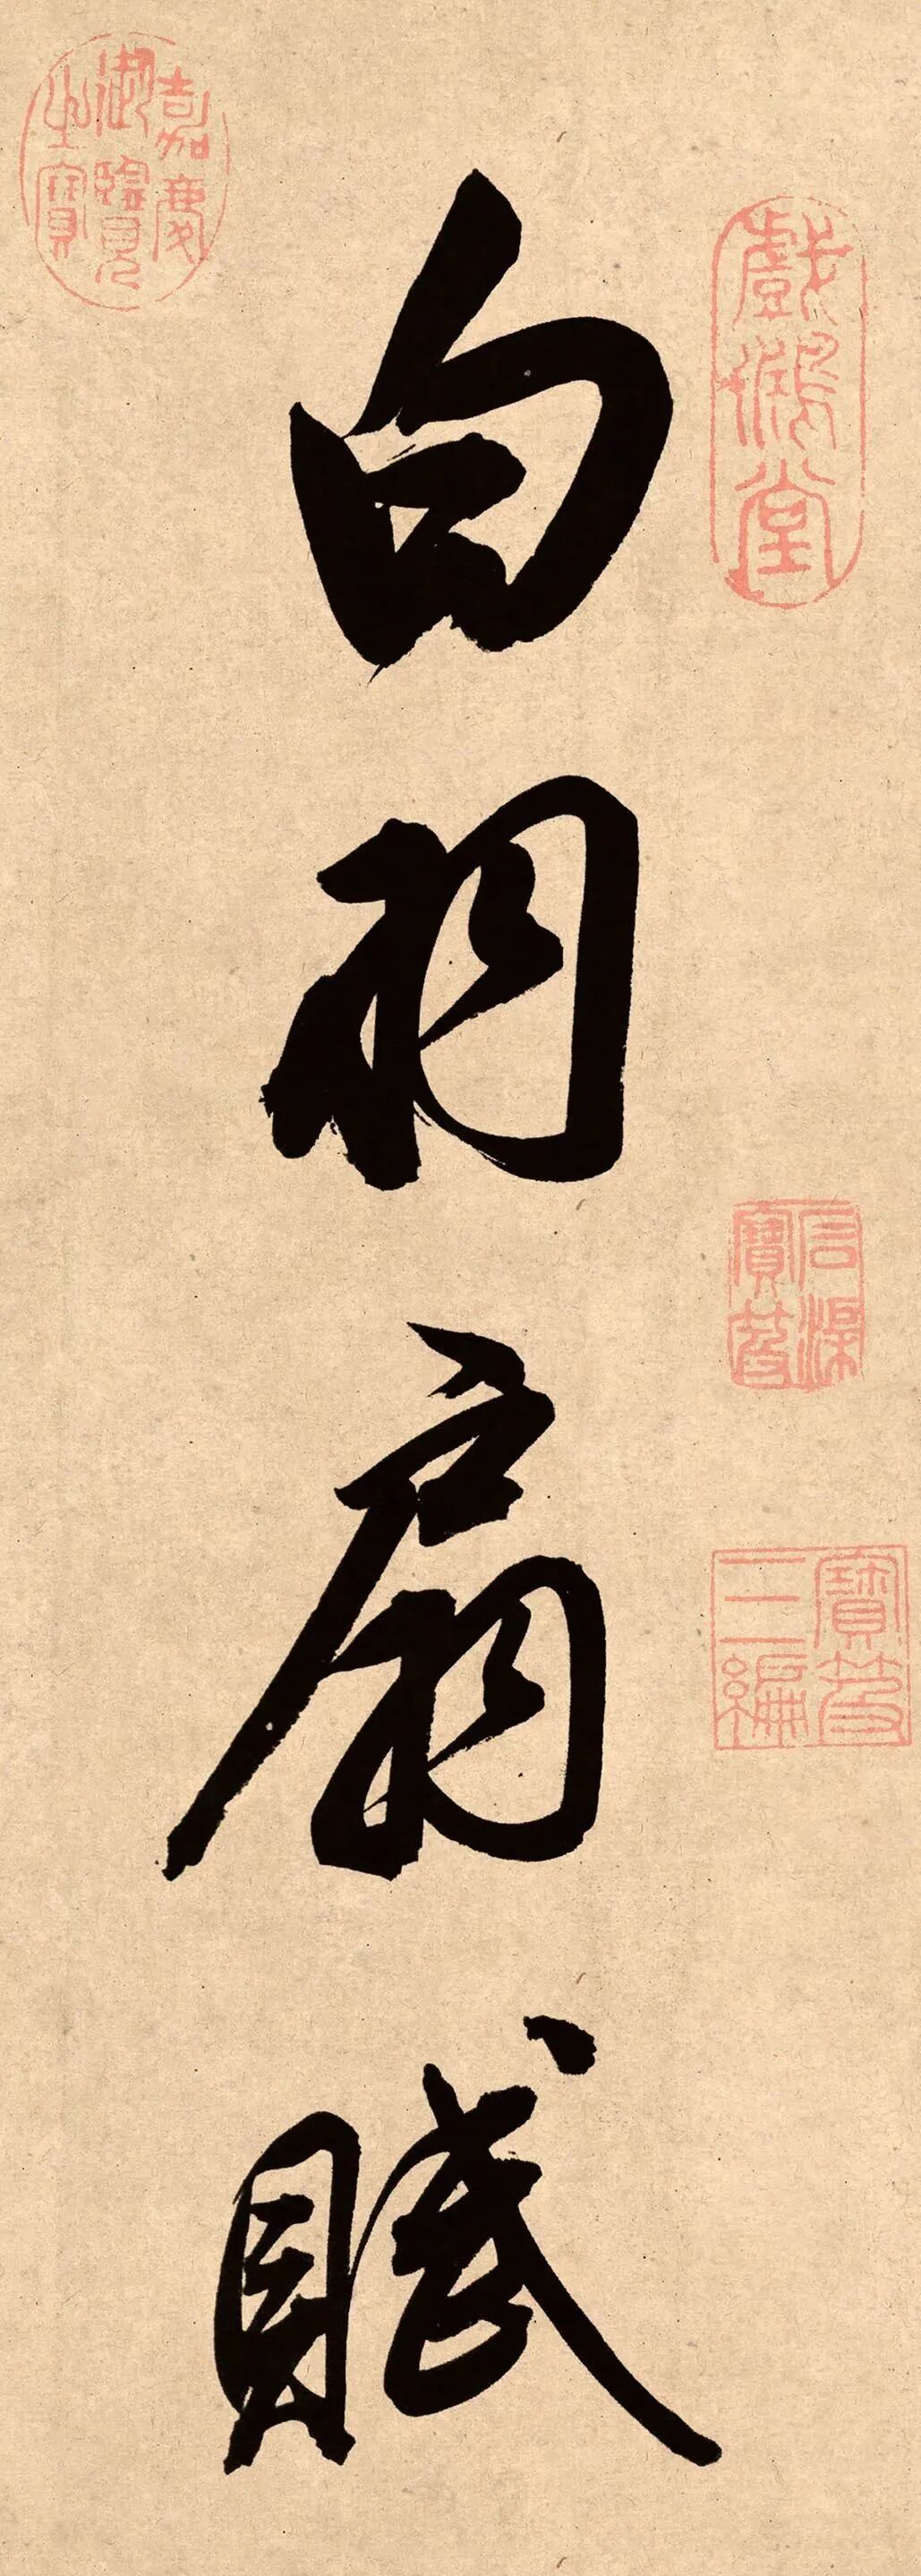 白羽扇賦
戲鴻堂
石渠寶笈
寶笈三編
嘉慶御覽之寶